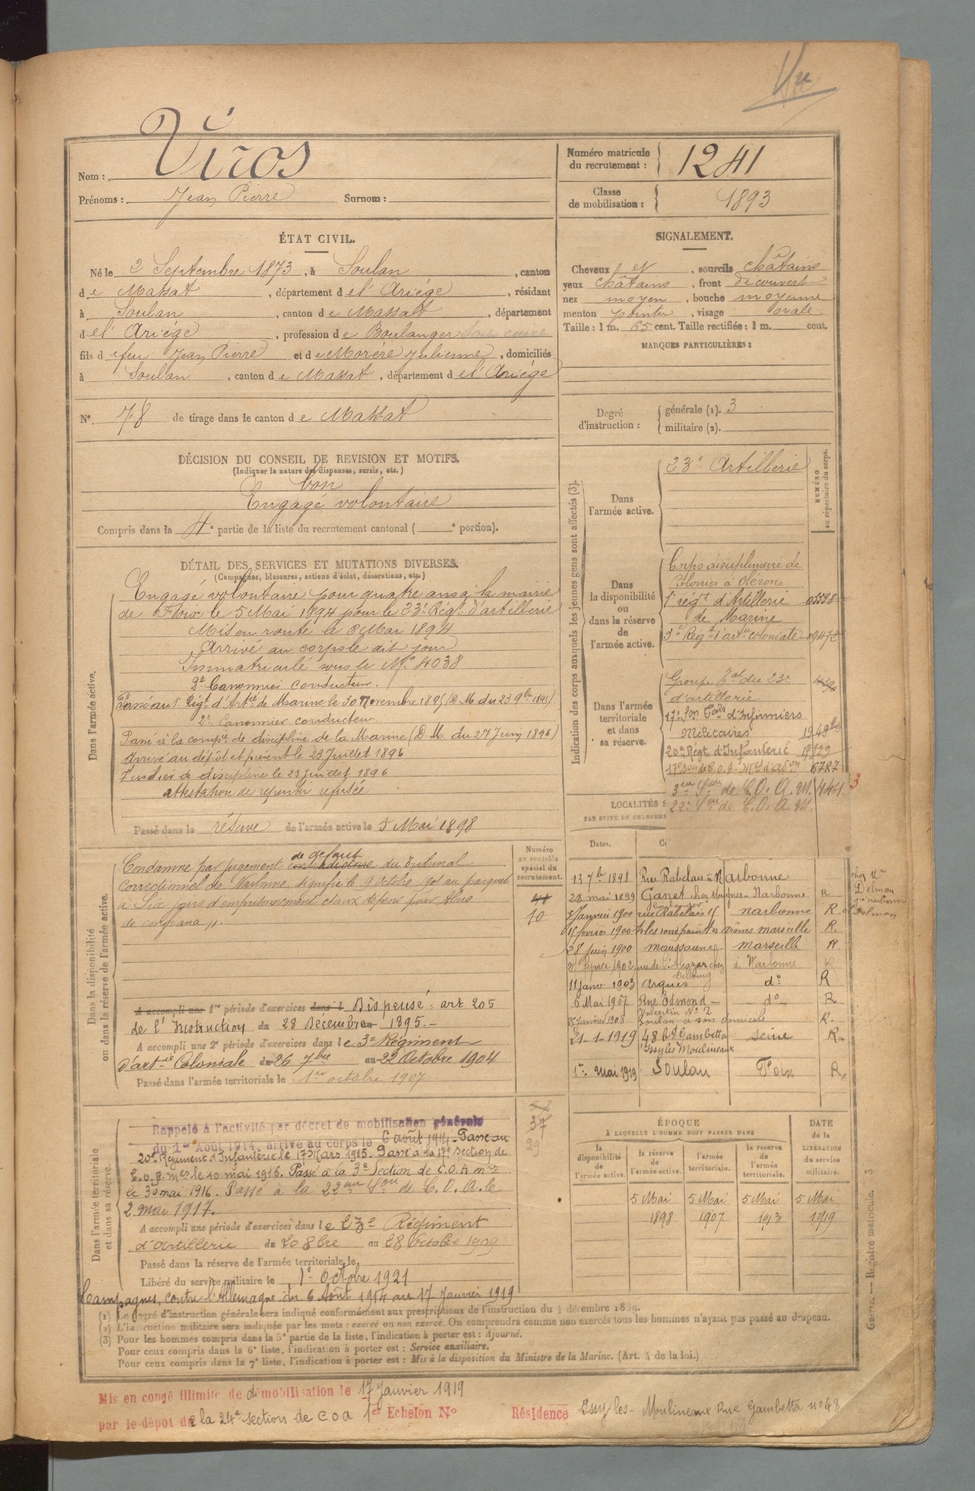 Nom : Viros
Prénoms : Jean Pierre Surnom :
Numéro matricule du recrutement : 1241
Classe de mobilisation : 1893
ÉTAT CIVIL.
Né le 2 Septembre 1873, à Soulan, canton
de Massat, département de l'Ariège, résidant
à Soulan, canton de Massat, département
de l'Ariège, profession de Boulanger
fils de feu Jean Pierre et de Morère Julienne, domiciliés
à Soulan, canton de Massat, département de l'Ariège
N° 78 de tirage dans le canton de Massat
SIGNALEMENT.
Cheveux et, sourcils châtains
yeux châtains, front découvert
nez moyen, bouche moyenne
menton pointu, visage ovale
Taille : 1 m. 65 cent. Taille rectifiée : 1 m. cent.
MARQUES PARTICULIÈRES :
Degré d'instruction : générale (1). 3
militaire (2).
DÉCISION DU CONSEIL DE REVISION ET MOTIFS.
(Indiquer la nature des dispenses, sursis, etc.)
bon
Engagé volontaire
Compris dans la 4e partie de la liste du recrutement cantonal ( e portion).
DÉTAIL DES SERVICES ET MUTATIONS DIVERSES.
(Campagnes, blessures, actions d'éclat, décorations, etc.)
Dans l'armée active.
Engagé volontaire pour quatre ans à la mairie
de Foix le 5 Mai 1894 pour le 23e Régt d'artillerie
Mis en route le 8 Mai 1894
Arrivé au corps le dit jour
Immatriculé sous le No 4038
2e Canonnier conducteur.
Passé au 1er Régt d'Artie de Marine le 30 Novembre 1895 (D.M. du 23 9bre 1895)
2e Canonnier conducteur
Passé à la compie de discipline de la Marine (D.M. du 27 Juin 1896)
Arrivé au dépôt et présent le 23 Juillet 1896
Fusilier de discipline le 23 Juillet 1896
Attestation de repentir refusée
Passé dans la réserve de l'armée active le 5 Mai 1898
Indication des corps auxquels les jeunes gens sont affectés (3).
NUMÉRO au répertoire du corps.
Dans l'armée active.
23e Artillerie
Dans la disponibilité ou dans la réserve de l'armée active.
Corps disciplinaire de
Colonies à Oléron
1er régt d'Artillerie
de Marine
3e Régt d'artie coloniale
Dans l'armée territoriale et dans sa réserve.
Groupe Tal du 23e
d'artillerie
17e Son Tale d'Infirmiers
Militaires
20e Régt d'Infanterie
17e Son de C.O.A.
3eme Son de C.O.A.M.
22e Son de C.O.A.M.
LOCALITÉS
Dans la disponibilité ou dans la réserve de l'armée active.
Condamné par jugement de défaut du Tribunal
correctionnel de Narbonne
à Six jours d'emprisonnement et aux dépens pour
Numéro au contrôle spécial du recrutement.
10
A accompli une 1re période d'exercices dans l Dispensé : art. 205
de l'Instruction du 28 Decembre 1895.
A accompli une 2e période d'exercices dans le 3e Régiment
d'artie Coloniale du 26 7bre au 22 Octobre 1904
Passé dans l'armée territoriale le 1er octobre 1907
Dates.
13 7bre 1898 Rue Rabelais Narbonne
28 mai 1899 Ganet chez Narbonne R.
5 Janvier 1900 rue Rabelais Narbonne R
15 février 1900 marseille R.
28 Juin 1900 Maussane marseille R
1902 rue de l'Alcazar chez à Narbonne
11 Janv 1903 Urgués do R
6 Mai 1907 Rue Edmond do R
Valentin No 2
Janvier 1908 Soulan à son domicile R.
21-1-1919 48 Bd Gambetta Seine R.
Issy les Moulineaux
1er mai 1919 Soulan Foix R.
Dans l'armée territoriale et dans sa réserve.
Rappelé à l'activité par décret de mobilisation générale
du 1er Août 1914, arrivé au corps le 6 août 1914. Passé au
20e Régiment d'Infanterie le 17 Mars 1915. Passé à la 17e Section de
C.O.A. le 10 mai 1916. Passé à la 3e Section de C.O.A.
le 30 mai 1916. Passé à la 22eme Son de C.O.A. le
2 mai 1917.
A accompli une période d'exercices dans le 23e Régiment
d'artillerie du 20 8bre au 28 Octobre 1909
Passé dans la réserve de l'armée territoriale le
Libéré du service militaire le 1er Octobre 1921
Campagnes, contre l'Allemagne du 6 Août 1914 au 17 Janvier 1919
37
29
ÉPOQUE
À LAQUELLE L'HOMME DOIT PASSER DANS
la disponibilité de l'armée active. la réserve de l'armée active. l'armée territoriale. la réserve de l'armée territoriale.
DATE de la LIBÉRATION du service militaire.
5 Mai 1898 5 Mai 1907 5 Mai 1913 5 Mai 1919
(1) Le degré d'instruction générale sera indiqué conformément aux prescriptions de l'instruction du 4 décembre 1889.
(2) L'instruction militaire sera indiquée par les mots : exercé ou non exercé. On comprendra comme non exercés tous les hommes n'ayant pas passé au drapeau.
(3) Pour les hommes compris dans la 5e partie de la liste, l'indication à porter est : Ajourné.
Pour ceux compris dans la 6e liste, l'indication à porter est : Service auxiliaire.
Pour ceux compris dans la 7e liste, l'indication à porter est : Mis à la disposition du Ministre de la Marine. (Art. 4 de la loi.)
Registre matricule. 3
Mis en congé illimité de démobilisation le 17 Janvier 1919
par le dépôt de la 24e section de COA 1er Echelon No Résidence Issy les-Moulineaux Rue Gambetta no 48